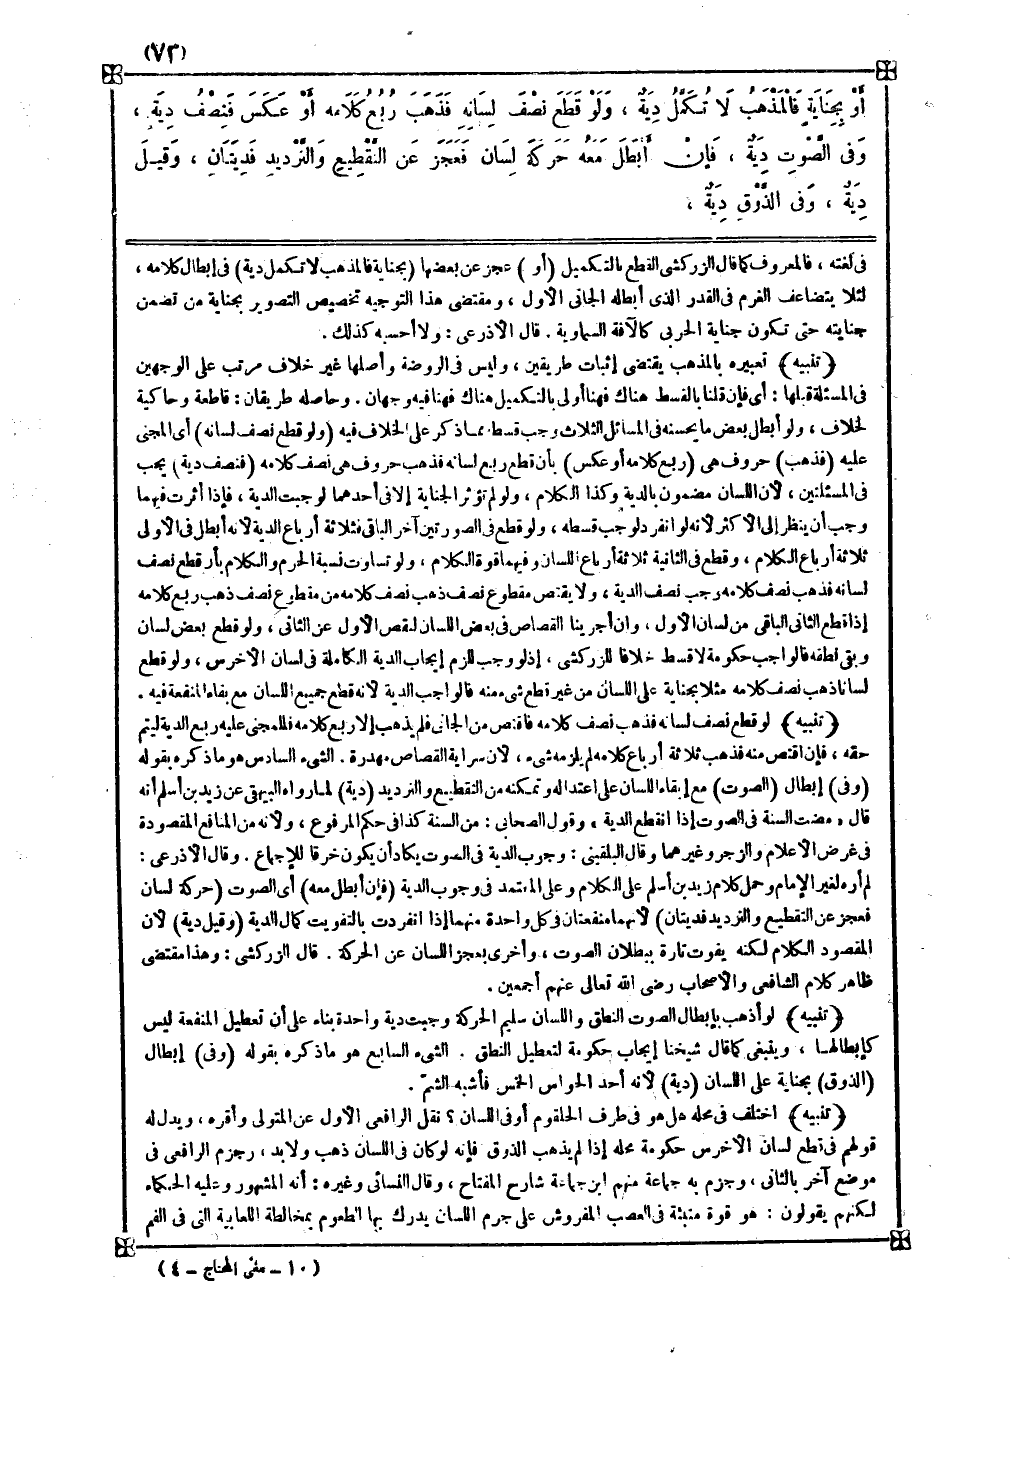 (٧٣)
أَوْ بِجِنَايَةٍ فَالْمَذْهَبُ لَا تُكَمَّلُ دِيَةٌ ، وَلَوْ قَطَعَ نِصْفَ لِسَانِهِ فَذَهَبَ رُبُعُ كَلَامِهِ أَوْ عَكَسَ فَنِصْفُ دِيَةٍ ،
وَفِى الصَّوْتِ دِيَةٌ ، فَإِنْ أَبْطَلَ مَعَهُ حَرَكَةَ لِسَانٍ فَعَجَزَ عَنِ التَّقْطِيعِ وَالتَّرْدِيدِ فَدِيَتَانِ ، وَقِيلَ
دِيَةٌ ، وَفِى الذَّوْقِ دِيَةٌ ،
فى لغته ، فالمعروف كما قال الزركشى القطع بالتكميل (أو) عجز عن بعضها (بجناية فالمذهب لا تكمل دية) فى إبطال كلامه ،
لئلا يتضاعف الغرم فى القدر الذى أبطله الجانى الأول ، ومقتضى هذا التوجيه تخصيص التصوير بجناية من تضمن
جنايته حتى تكون جناية الحربى كالآفة السماوية . قال الأذرعى : ولا أحسبه كذلك .
﴿تنبيه﴾ تعبيره بالمذهب يقتضى إثبات طريقين ، وليس فى الروضة وأصلها غير خلاف مرتب على الوجهين
فى المسئلة قبلها : أى فإن قلنا بالقسط هناك فهنا أولى بالتكميل هناك فهنا فيه وجهان . وحاصله طريقان : قاطعة وحاكية
لخلاف ، ولو أبطل بعض ما يحسنه فى المسائل الثلاث وجب قسطه مما ذكر على الخلاف فيه (ولو قطع نصف لسانه) أى المجنى
عليه (فذهب) حروف هى (ربع كلامه أو عكس) بأن قطع ربع لسانه فذهب حروف هى نصف كلامه (فنصف دية) يجب
فى المسئلتين ، لأن اللسان مضمون بالدية وكذا الكلام ، ولو لم تؤثر الجناية إلا فى أحدهما لوجبت الدية ، فإذا أثرت فيهما
وجب أن ينظر إلى الأكثر لأنه لو انفرد لوجب قسطه ، ولو قطع فى الصورتين آخر الباقى فثلاثة أرباع الدية لأنه أبطل فى الأولى
ثلاثة أرباع الكلام ، وقطع فى الثانية ثلاثة أرباع اللسان وفيهما قوة الكلام ، ولو تساوت نسبة الجرم والكلام بأن قطع نصف
لسانه فذهب نصف كلامه وجب نصف الدية ، ولا يقتص مقطوع نصف ذهب نصف كلامه من مقطوع نصف ذهب ربع كلامه
إذا قطع الثانى الباقى من لسان الأول ، وان أجرينا القصاص فى بعض اللسان لنقص الأول عن الثانى ، ولو قطع بعض لسان
وبقى نطقه فالواجب حكومة لا قسط خلافا للزركشى ، إذ لو وجب للزم إيجاب الدية الكاملة فى لسان الأخرس ، ولو قطع
لسانا ذهب نصف كلامه مثلا بجناية على اللسان من غير قطع شىء منه فالواجب الدية لأنه قطع جميع اللسان مع بقاء المنفعة فيه .
﴿تنبيه﴾ لو قطع نصف لسانه فذهب نصف كلامه فاقتص من الجانى فلم يذهب إلا ربع كلامه فللمجنى عليه ربع الدية ليتم
حقه ، فإن اقتص منه فذهب ثلاثة أرباع كلامه لم يلزمه شىء ، لأن سراية القصاص مهدرة . الشىء السادس هو ما ذكره بقوله
(وفى) إبطال (الصوت) مع إبقاء اللسان على اعتداله وتمكنه من التقطيع والترديد (دية) لما رواه البيهقى عن زيد بن أسلم أنه
قال « مضت السنة فى الصوت إذا انقطع الدية » وقول الصحابى : من السنة كذا فى حكم المرفوع ، ولأنه من المنافع المقصودة
فى غرض الاعلام والزجر وغيرهما وقال البلقينى : وجوب الدية فى الصوت يكاد أن يكون خرقا للإجماع . وقال الأذرعى :
لم أره لغير الإمام وحمل كلام زيد بن أسلم على الكلام وعلى المعتمد فى وجوب الدية (فإن أبطل معه) أى الصوت (حركة لسان
فعجز عن التقطيع والترديد فديتان) لأنهما منفعتان فى كل واحدة منهما إذا انفردت بالتفويت كمال الدية (وقيل دية) لأن
المقصود الكلام لكنه يفوت تارة ببطلان الصوت ، وأخرى بعجز اللسان عن الحركة . قال الزركشى : وهذا مقتضى
ظاهر كلام الشافعى والأصحاب رضى الله تعالى عنهم أجمعين .
﴿تنبيه﴾ لو أذهب بإبطال الصوت النطق واللسان سليم الحركة وجبت دية واحدة بناء على أن تعطيل المنفعة ليس
كإبطالها ، وينبغى كما قال شيخنا إيجاب حكومة لتعطيل النطق . الشىء السابع هو ما ذكره بقوله (وفى) إبطال
(الذوق) بجناية على اللسان (دية) لأنه أحد الحواس الخمس فأشبه الشمّ .
﴿تنبيه﴾ اختلف فى محله هل هو فى طرف الحلقوم أو فى اللسان ؟ نقل الرافعى الأول عن المتولى وأقره ، ويدل له
قولهم فى قطع لسان الأخرس حكومة محله إذا لم يذهب الذوق فإنه لو كان فى اللسان ذهب ولابد ، وجزم الرافعى فى
موضع آخر بالثانى ، وجزم به جماعة منهم ابن جماعة شارح المفتاح ، وقال النسائى وغيره : أنه المشهور وعليه الحكماء
لكنهم يقولون : هو قوة منبثة فى العصب المفروش على جرم اللسان يدرك بها الطعوم بمخالطة اللعابية التى فى الفم
(١٠ – مغنى المحتاج – ٤)